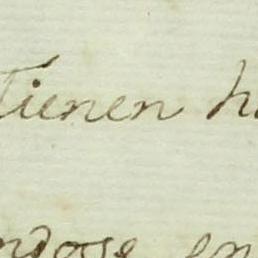 Tienen h
ndose en